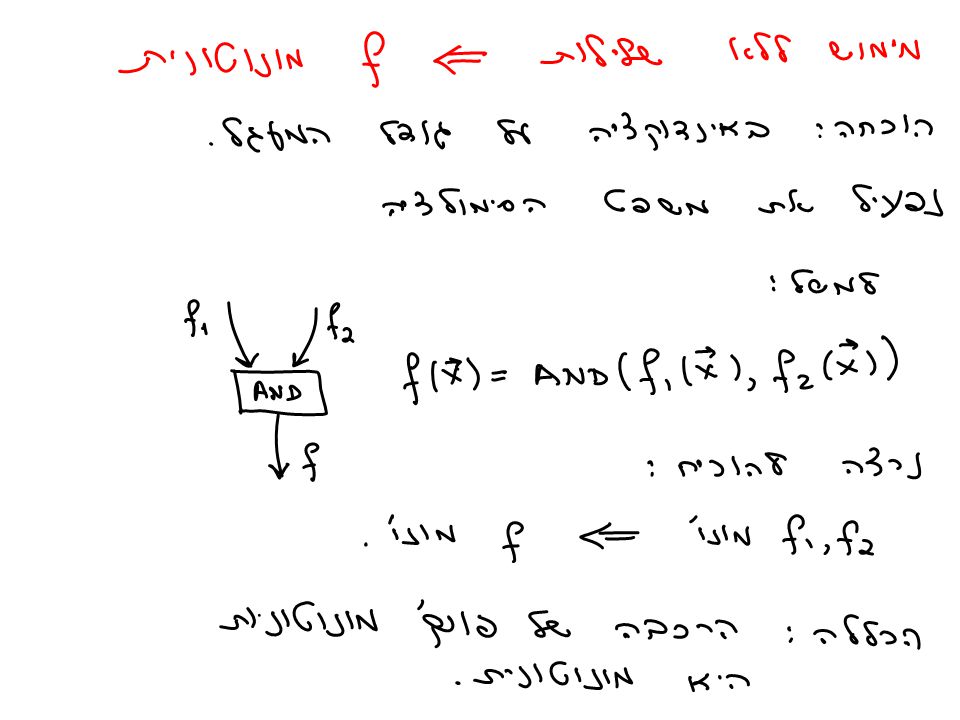 מימוש ללא שלילות ⇐ f מונוטונית
הוכחה: באינדוקציה על גודל המעגל.
נפעיל את משפט הסימולציה
למשל:
f₁ f₂
AND
f
f(x⃗) = AND(f₁(x⃗), f₂(x⃗))
נרצה להוכיח:
f₁, f₂ מונו' ⇐ f מונו'.
הכללה: הרכבה של פונק' מונוטוניות
היא מונוטונית.